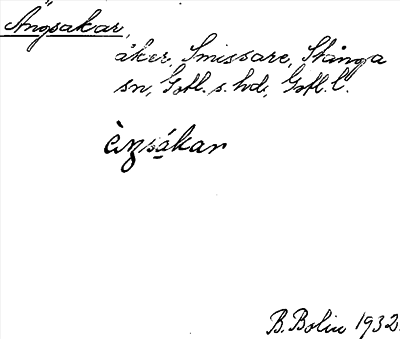 Ängsakar,
åker, Smissare, Stånga
sn, Gotl. s. hd, Gotl. l.
B. Bolin 1932.